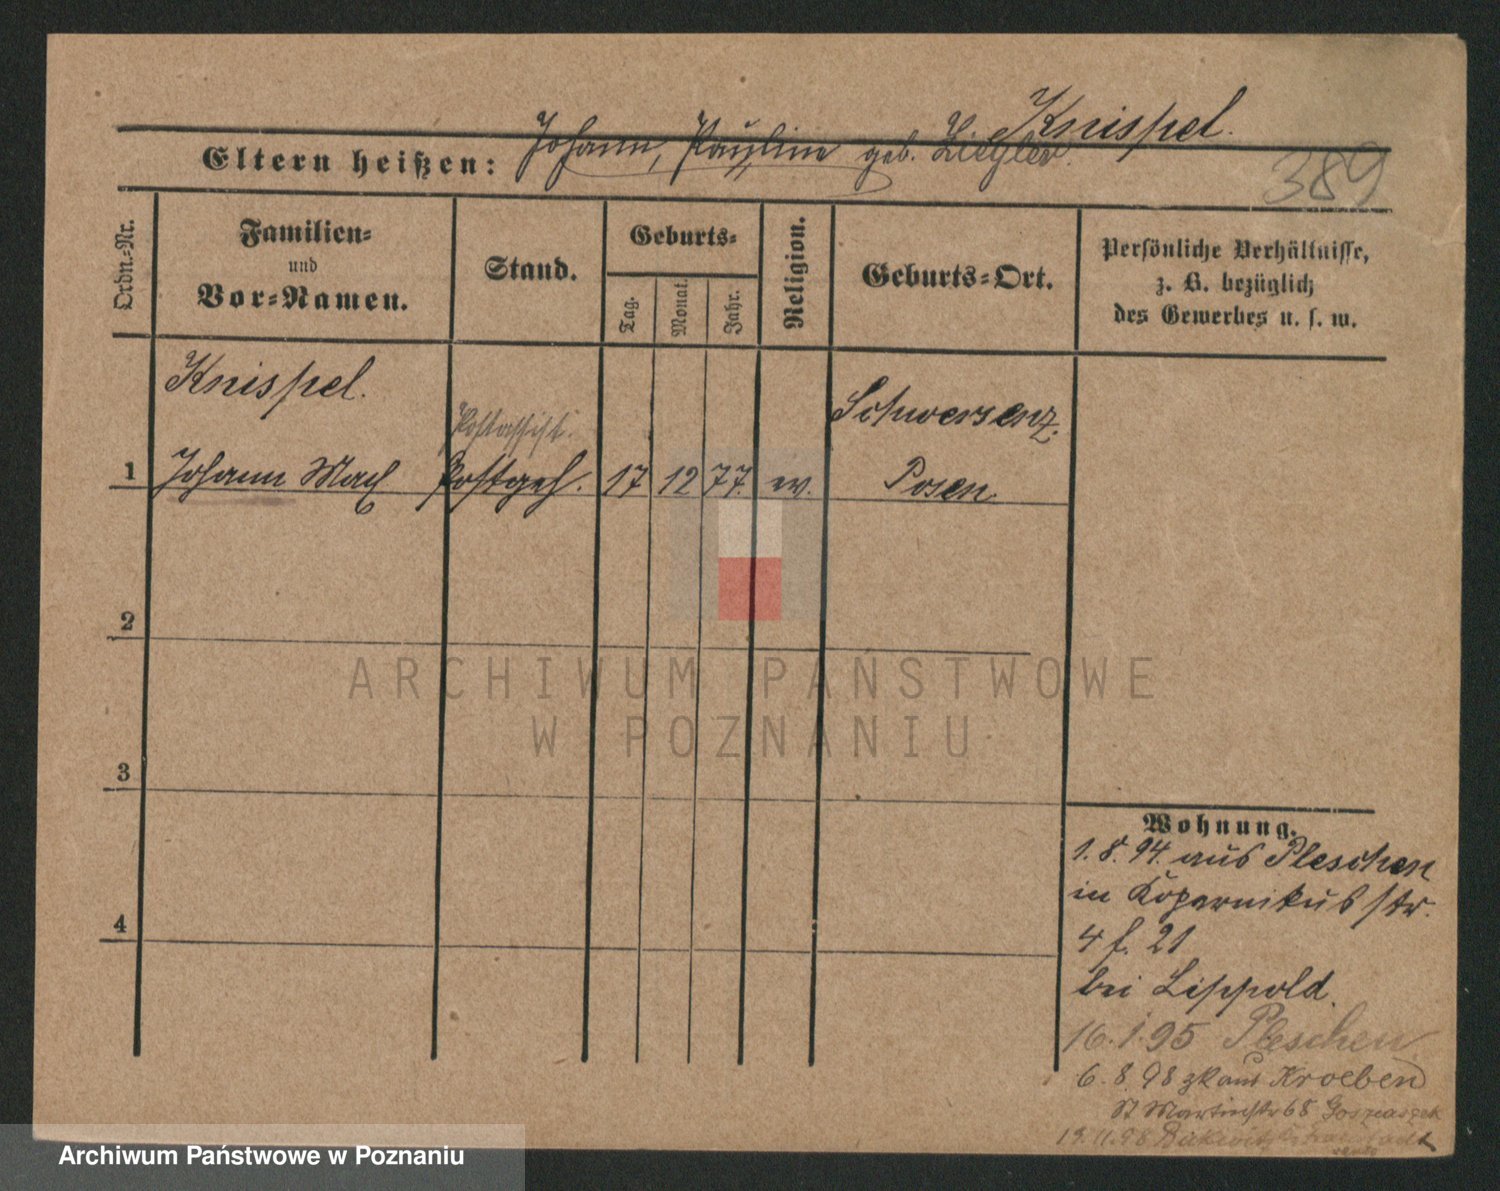 Knispel.
Eltern heißen: Johann, Pauline geb. Ziegler.
389
Ordn.-Nr.
Familien-
und
Vor-Namen.
Stand.
Geburts-
Tag.
Monat.
Jahr.
Religion.
Geburts-Ort.
Persönliche Verhältnisse,
z. B. bezüglich
des Gewerbes u. s. w.
Knispel.
Postassist.
Schwersenz.
1 Johann Max Postgeh. 17 12 77. ev. Posen.
2
3
4
ARCHIWUM PAŃSTWOWE
W POZNANIU
Wohnung.
1.8.94. aus Pleschen
in Kopernikusstr.
4 f. 21
bei Lippold.
16.1.95 Pleschen
6.8.98 zk aus Kroeben
St Martinstr 68
19.11.98
Archiwum Państwowe w Poznaniu